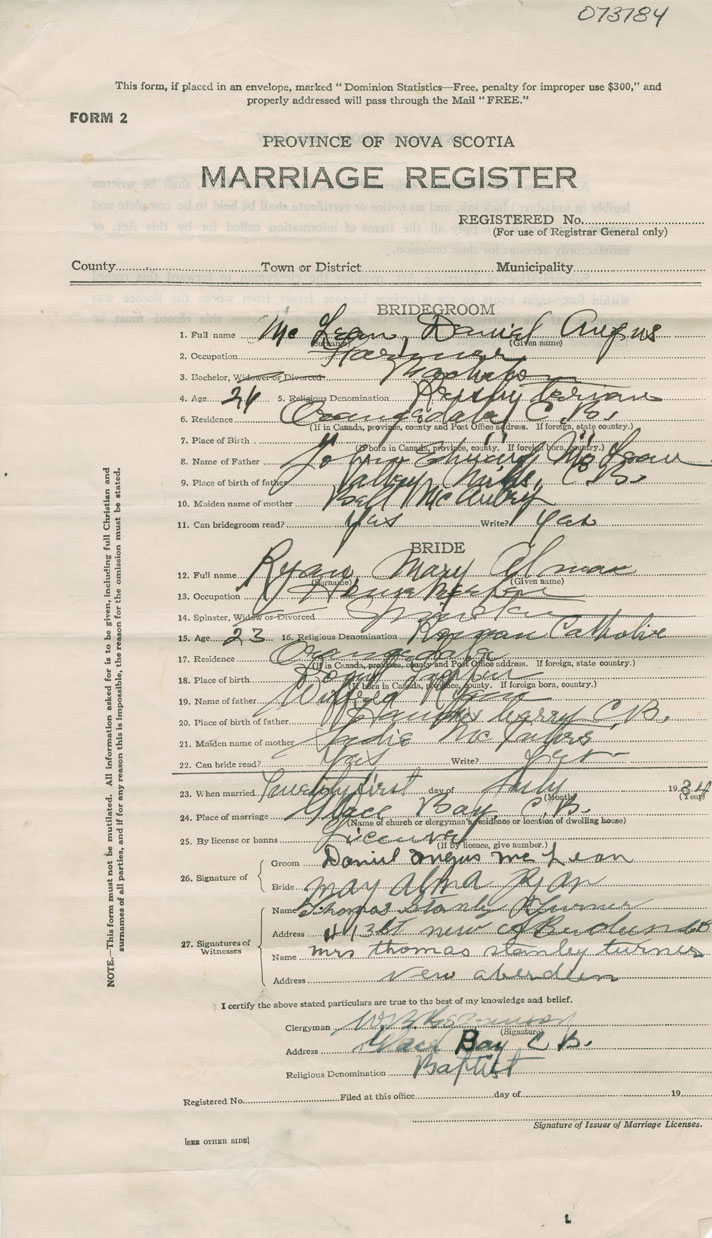 073784
This form, if placed in an envelope, marked "Dominion Statistics—Free, penalty for improper use $300," and
properly addressed will pass through the Mail "FREE."
FORM 2
PROVINCE OF NOVA SCOTIA
MARRIAGE REGISTER
REGISTERED No.
(For use of Registrar General only)
County Town or District Municipality
BRIDEGROOM
1. Full name Mc Lean, Daniel Angus
(Surname) (Given name)
2. Occupation Farmer
3. Bachelor, Widower or Divorced Bachelor
4. Age 24 5. Religious Denomination Presbyterian
6. Residence Orangedale, C. B.
(If in Canada, province, county and Post Office address. If foreign, state country.)
7. Place of Birth " " "
(If born in Canada, province, county. If foreign born, country.)
8. Name of Father John Edwin Mc Lean
9. Place of birth of father Valley Mills, C. B.
10. Maiden name of mother Bell McAulay
11. Can bridegroom read? Yes Write? Yes
BRIDE
12. Full name Ryan, Mary Alma
(Surname) (Given name)
13. Occupation Housework
14. Spinster, Widow or Divorced Spinster
15. Age 23 16. Religious Denomination Roman Catholic
17. Residence Orangedale
(If in Canada, province, county and Post Office address. If foreign, state country.)
18. Place of birth
(If born in Canada, province, county. If foreign born, country.)
19. Name of father Wilfred Ryan
20. Place of birth of father Ferry C. B.
21. Maiden name of mother Sadie Mc
22. Can bride read? Yes Write? Yes
23. When married Twenty first day of July 1934
(Month) (Year)
24. Place of marriage Glace Bay, C. B.
(Name of church or clergyman's residence or location of dwelling house)
25. By license or banns License
(If by licence, give number.)
26. Signature of
Groom Daniel Angus Mc Lean
Bride May Alma Ryan
27. Signatures of Witnesses
Name Thomas Stanly Turner
Address 413 St New Aberdeen CB
Name Mrs Thomas Stanley Turner
Address New Aberdeen
I certify the above stated particulars are true to the best of my knowledge and belief.
Clergyman
(Signature)
Address Glace Bay C. B.
Religious Denomination Baptist
Registered No. Filed at this office day of 19
Signature of Issuer of Marriage Licenses.
[SEE OTHER SIDE]
NOTE.—This form must not be mutilated. All information asked for is to be given, including full Christian and
surnames of all parties, and if for any reason this is impossible, the reason for the omission must be stated.